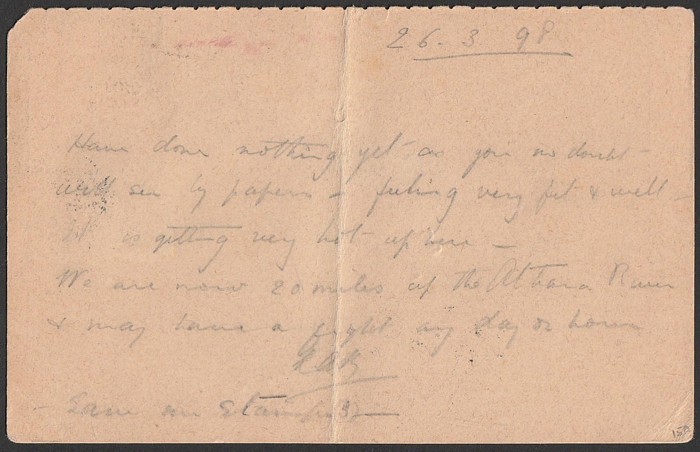 26.3 98
Have done nothing yet as you no doubt
will see by papers - feeling very fit & well -
It is getting very hot up here -
We are now 20 miles up the Atbara River
& may have a fight any day or hour
- Save me stamps -